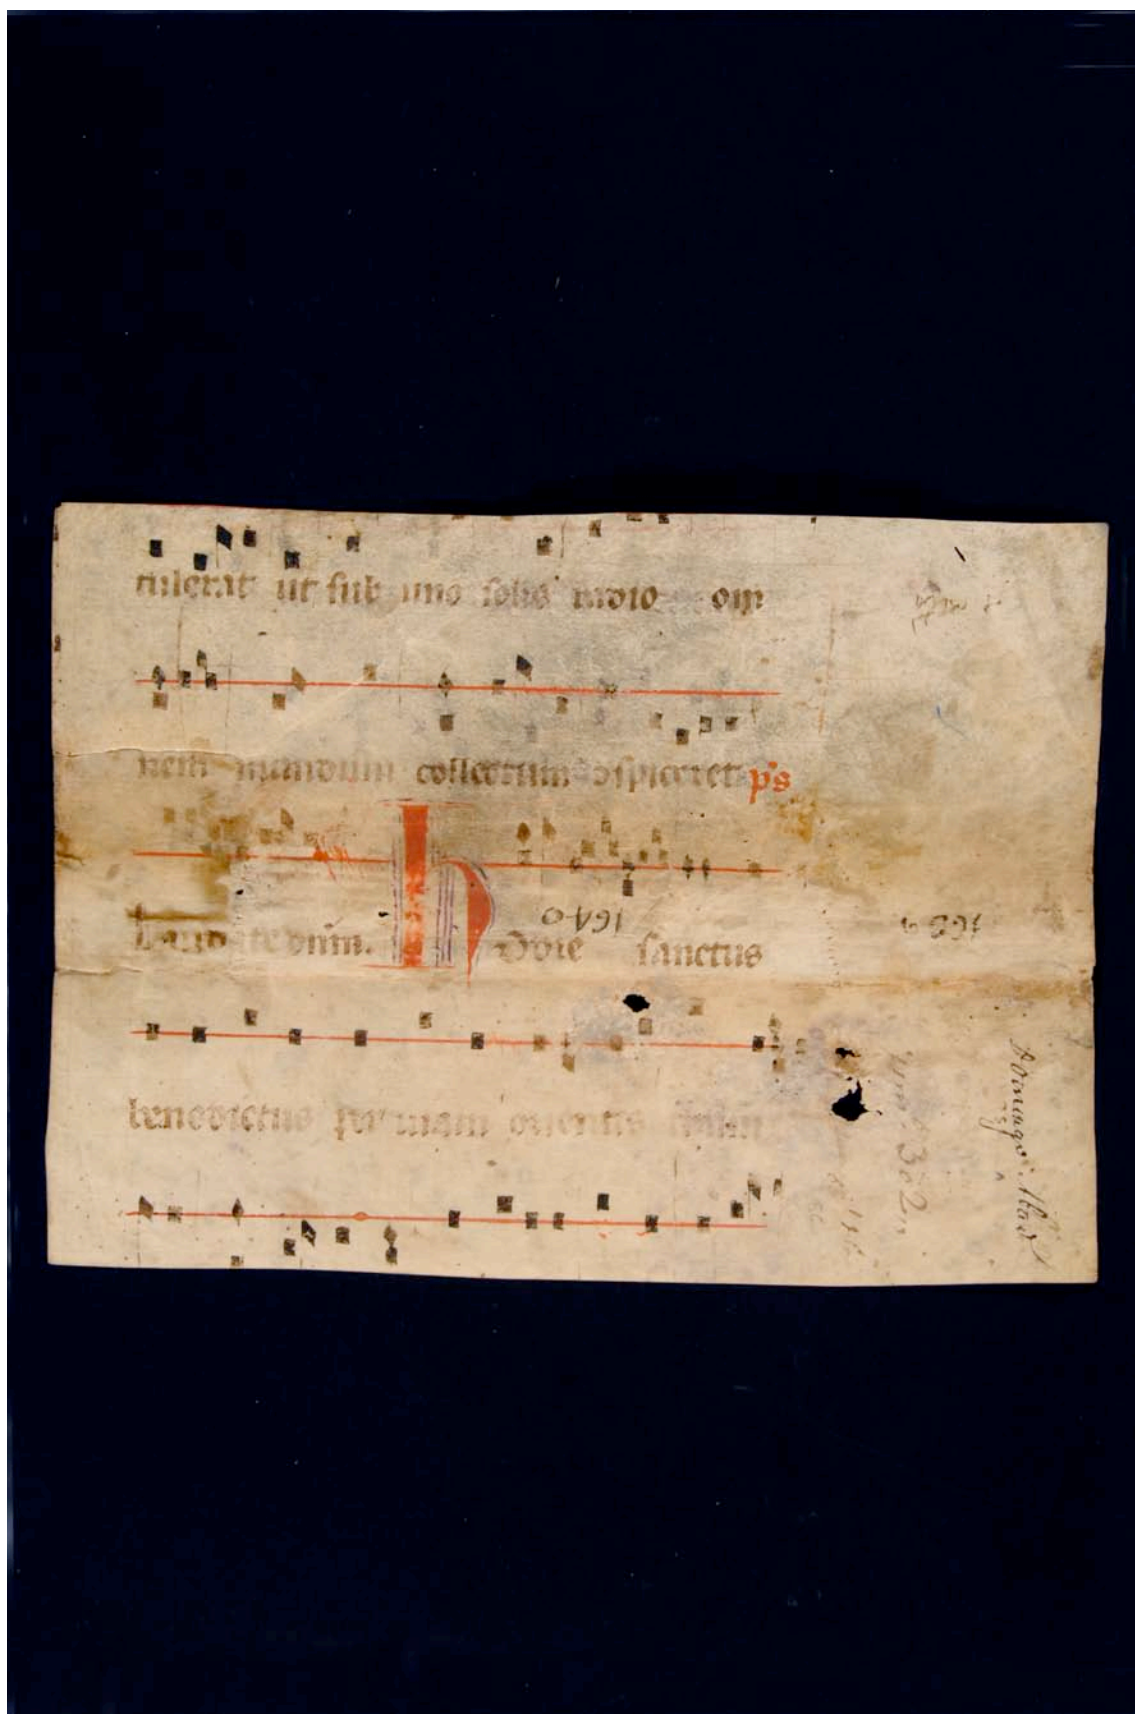 tulerat ut sub uno solis radio om
nem mundum collectum aspiceret ps
Laudate dnm. Hodie sanctus
1640
benedictus per viam orientis
302
Domingo Abad